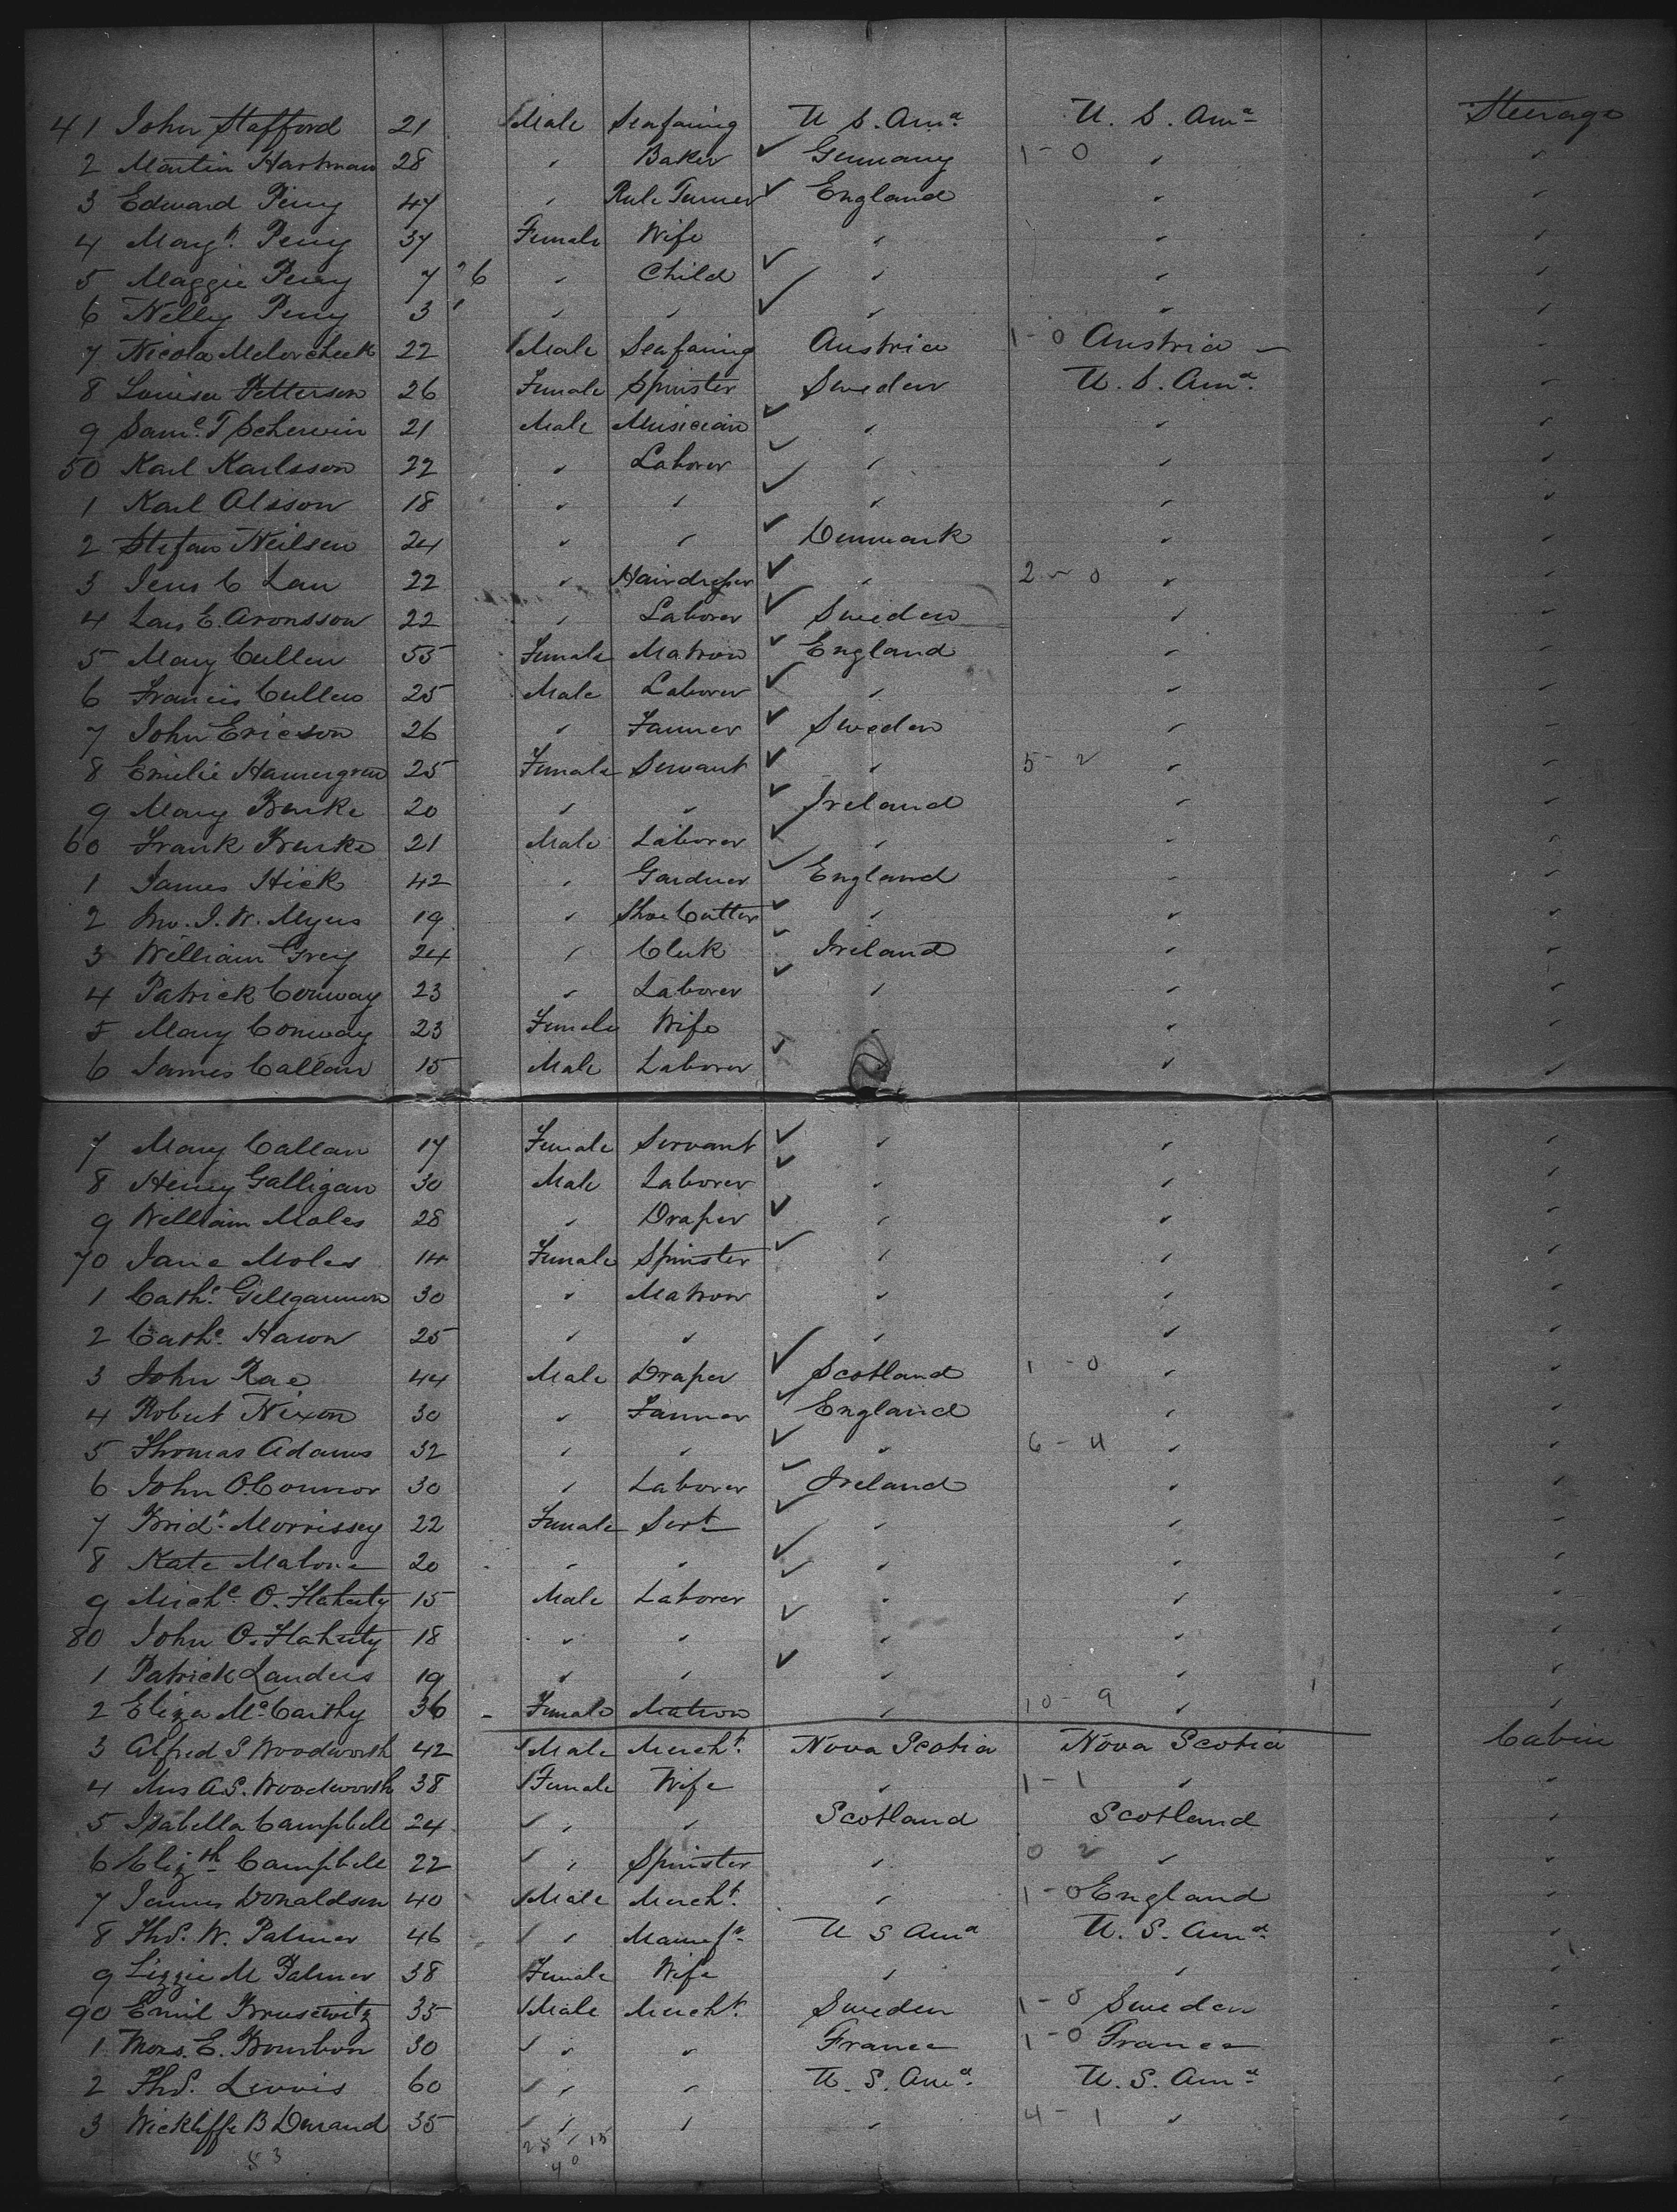 41 John Stafford 21 Male Seafaring U S. Amª U. S. Amª Steerage
2 Martin Hartman 28 " Baker ✓ Germany 1-0 " "
3 Edward Perry 47 " Rule Turner ✓ England " "
4 Margt. Perry 37 Female Wife " " "
5 Maggie Perry 7 6 " Child ✓ " " "
6 Nelly Perry 3 " " ✓ " " "
7 Nicola 22 Male Seafaring Austria 1-0 Austria "
8 Louisa Petterson 26 Female Spinster Sweden U. S. Amª "
9 Saml. T Scherwin 21 Male Musician ✓ " " "
50 Karl Karlsson 22 " Laborer ✓ " " "
1 Karl Olsson 18 " " ✓ " " "
2 Stefan Neilsen 24 " " ✓ Denmark " "
3 Jens C Lau 22 " Hairdresser ✓ " 2-0 " "
4 Lars E. Aronsson 22 " Laborer ✓ Sweden " "
5 Mary Cullen 55 Female Matron ✓ England " "
6 Francis Cullen 25 Male Laborer ✓ " " "
7 John Ericson 26 " Farmer ✓ Sweden " "
8 Emelie Hamergren 25 Female Servant ✓ " 5-2 " "
9 Mary Burke 20 " " ✓ Ireland " "
60 Frank Burke 21 Male Laborer ✓ " " "
1 James Hick 42 " Gardner ✓ England " "
2 Jno. J. W. Myers 19 " Shoe Cutter ✓ " " "
3 William Grey 24 " Clerk ✓ Ireland " "
4 Patrick Conway 23 " Laborer ✓ " " "
5 Mary Conway 23 Female Wife " " "
6 James Callan 15 Male Laborer ✓ " "
7 Mary Callan 17 Female Servant ✓ " " "
8 Henry Galligan 30 Male Laborer ✓ " " "
9 William Moles 28 " Draper ✓ " " "
70 Jane Moles 14 Female Spinster ✓ " " "
1 Cathe. Gillgannon 30 " Matron " " "
2 Cathe. Haron 25 " " " " "
3 John Rae 44 Male Draper ✓ Scotland 1-0 " "
4 Robert Nixon 30 " Farmer ✓ England " "
5 Thomas Adams 32 " " ✓ " 6-4 " "
6 John O.Connor 30 " Laborer ✓ Ireland " "
7 Bridt. Morrissey 22 Female Servt ✓ " " "
8 Kate Malone 20 " " ✓ " " "
9 Miche. O. Flaherty 15 Male Laborer ✓ " " "
80 John O. Flaherty 18 " " ✓ " " "
1 Patrick Landers 19 " " ✓ " " "
2 Eliza McCarthy 36 Female Matron " 10-9 " "
3 Alfred S Woodworth 42 Male Mercht. Nova Scotia Nova Scotia Cabin
4 Mrs A.S. Woodworth 38 Female Wife " 1-1 " "
5 Isabella Campbell 24 " " Scotland Scotland "
6 Elizth Campbell 22 " Spinster " 0 2 " "
7 James Donaldson 40 Male Mercht. " 1-0 England "
8 Thos. W. Palmer 46 " Manufr. U S Amª U. S. Amª "
9 Lizzie M Palmer 38 Female Wife " " "
90 Emil Brusewitz 35 Male Mercht. Sweden 1-0 Sweden "
1 Mons. E. Bourbon 30 " " France 1-0 France "
2 Thos. Lewis 60 " " U. S. Amª U. S. Amª "
3 Wickliffe B Durand 35 " " " 4-1 " "
53 25 15
40